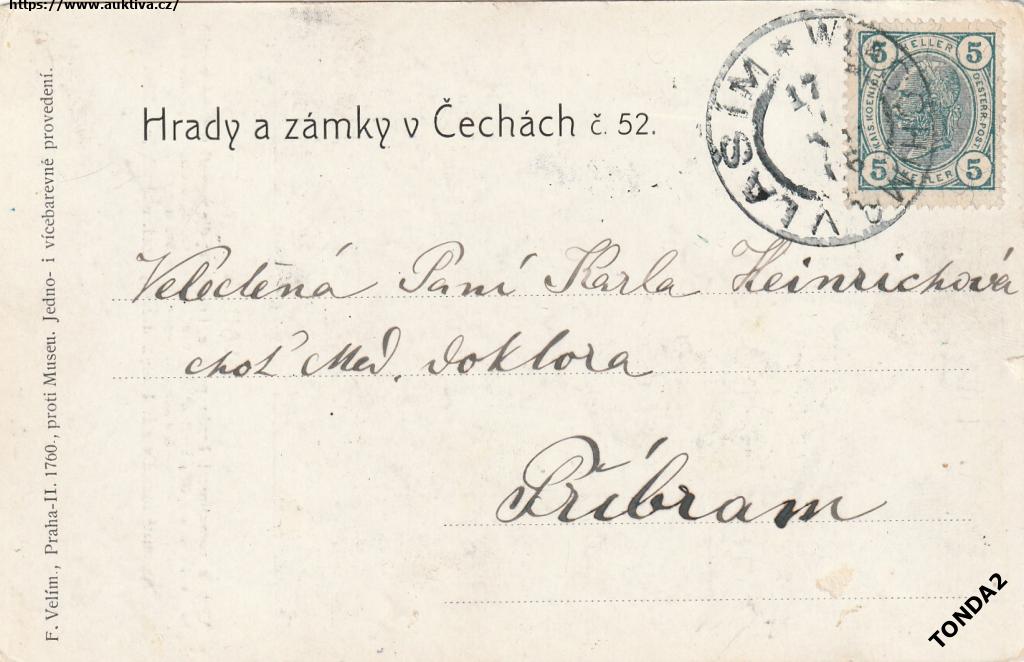 https://www.auktiva.cz/
Hrady a zámky v Čechách č. 52.
VLAŠÍM * 17
5 HELLER 5
KAIS. KOENIGL. OESTERR. POST
5 HELLER 5
Veleděná Paní Karla Heinrichová
choť Med. doktora
Příbram
F. Velím., Praha-II. 1760., proti Museu. Jedno- i vícebarevné provedení.
TONDA2